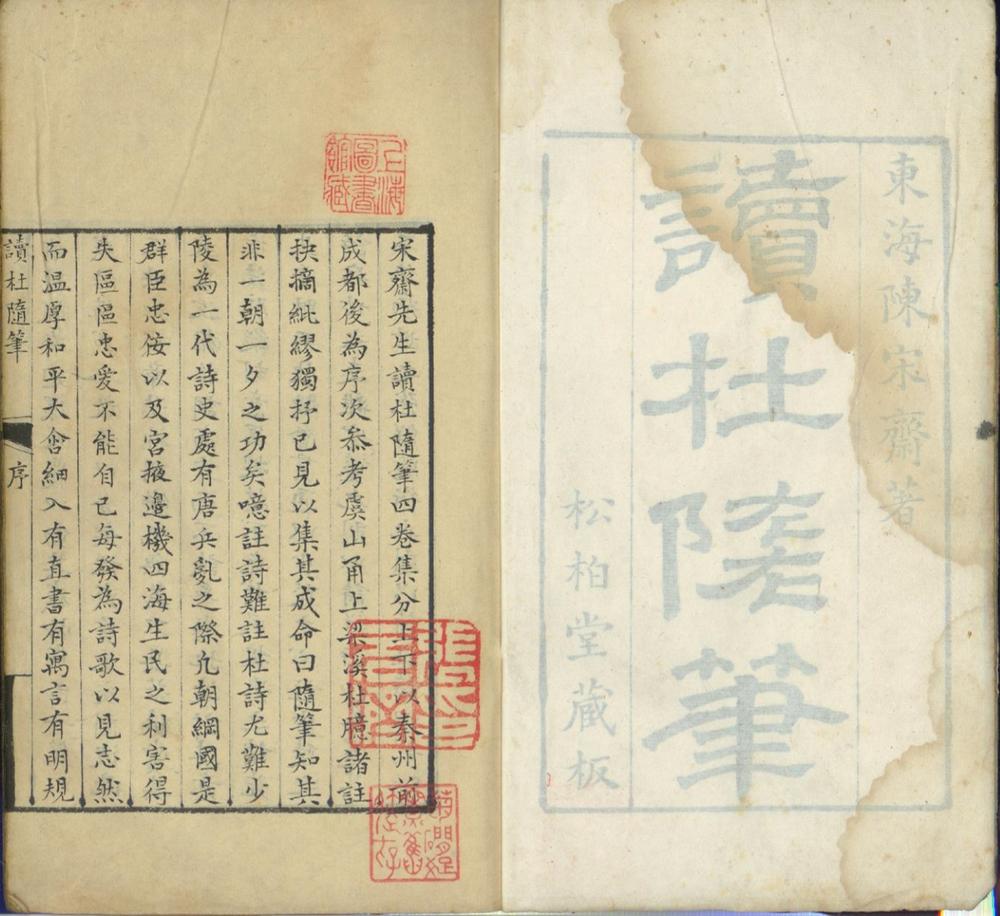 東海陳宋齋著
讀杜隨筆
松柏堂藏板
上海圖書館藏
宋齋先生讀杜隨筆四卷集分上下以秦州前
成都後為序次叅考虞山甬上梁溪杜臆諸註
抉摘紕繆獨抒已見以集其成命曰隨筆知其
非一朝一夕之功矣噫註詩難註杜詩尤難少
陵為一代詩史處有唐兵亂之際凢朝綱國是
群臣忠佞以及宮掖邉機四海生民之利害得
失區區忠愛不能自已每發為詩歌以見志然
而溫厚和平大含細入有直書有寓言有明規
讀杜隨筆
序